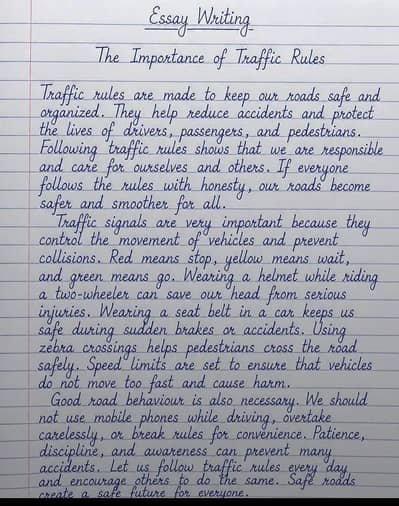 Essay Writing
The Importance of Traffic Rules
Traffic rules are made to keep our roads safe and
organized. They help reduce accidents and protect
the lives of drivers, passengers, and pedestrians.
Following traffic rules shows that we are responsible
and care for ourselves and others. If everyone
follows the rules with honesty, our roads become
safer and smoother for all.
Traffic signals are very important because they
control the movement of vehicles and prevent
collisions. Red means stop, yellow means wait,
and green means go. Wearing a helmet while riding
a two-wheeler can save our head from serious
injuries. Wearing a seat belt in a car keeps us
safe during sudden brakes or accidents. Using
zebra crossings helps pedestrians cross the road
safely. Speed limits are set to ensure that vehicles
do not move too fast and cause harm.
Good road behaviour is also necessary. We should
not use mobile phones while driving, overtake
carelessly, or break rules for convenience. Patience,
discipline, and awareness can prevent many
accidents. Let us follow traffic rules every day
and encourage others to do the same. Safe roads
create a safe future for everyone.